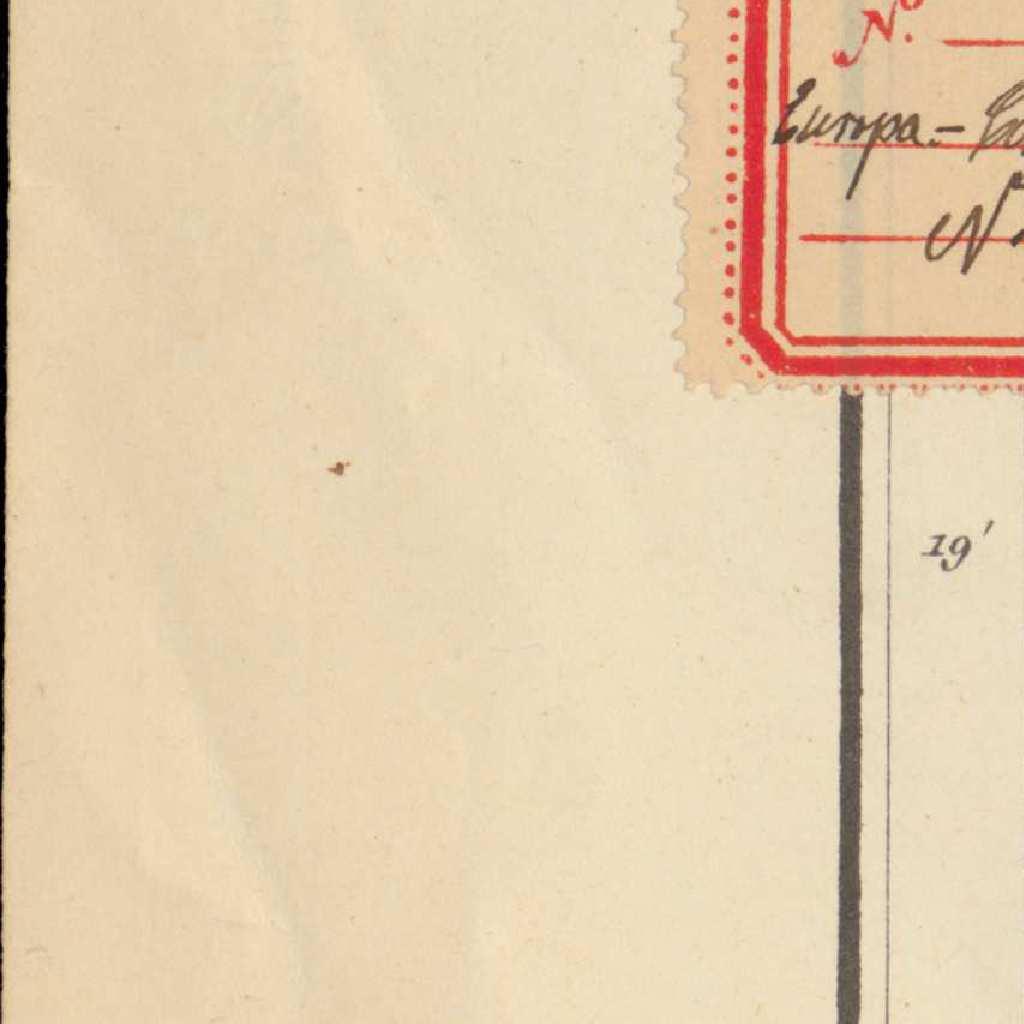 N.º
Europa.-
N
19'